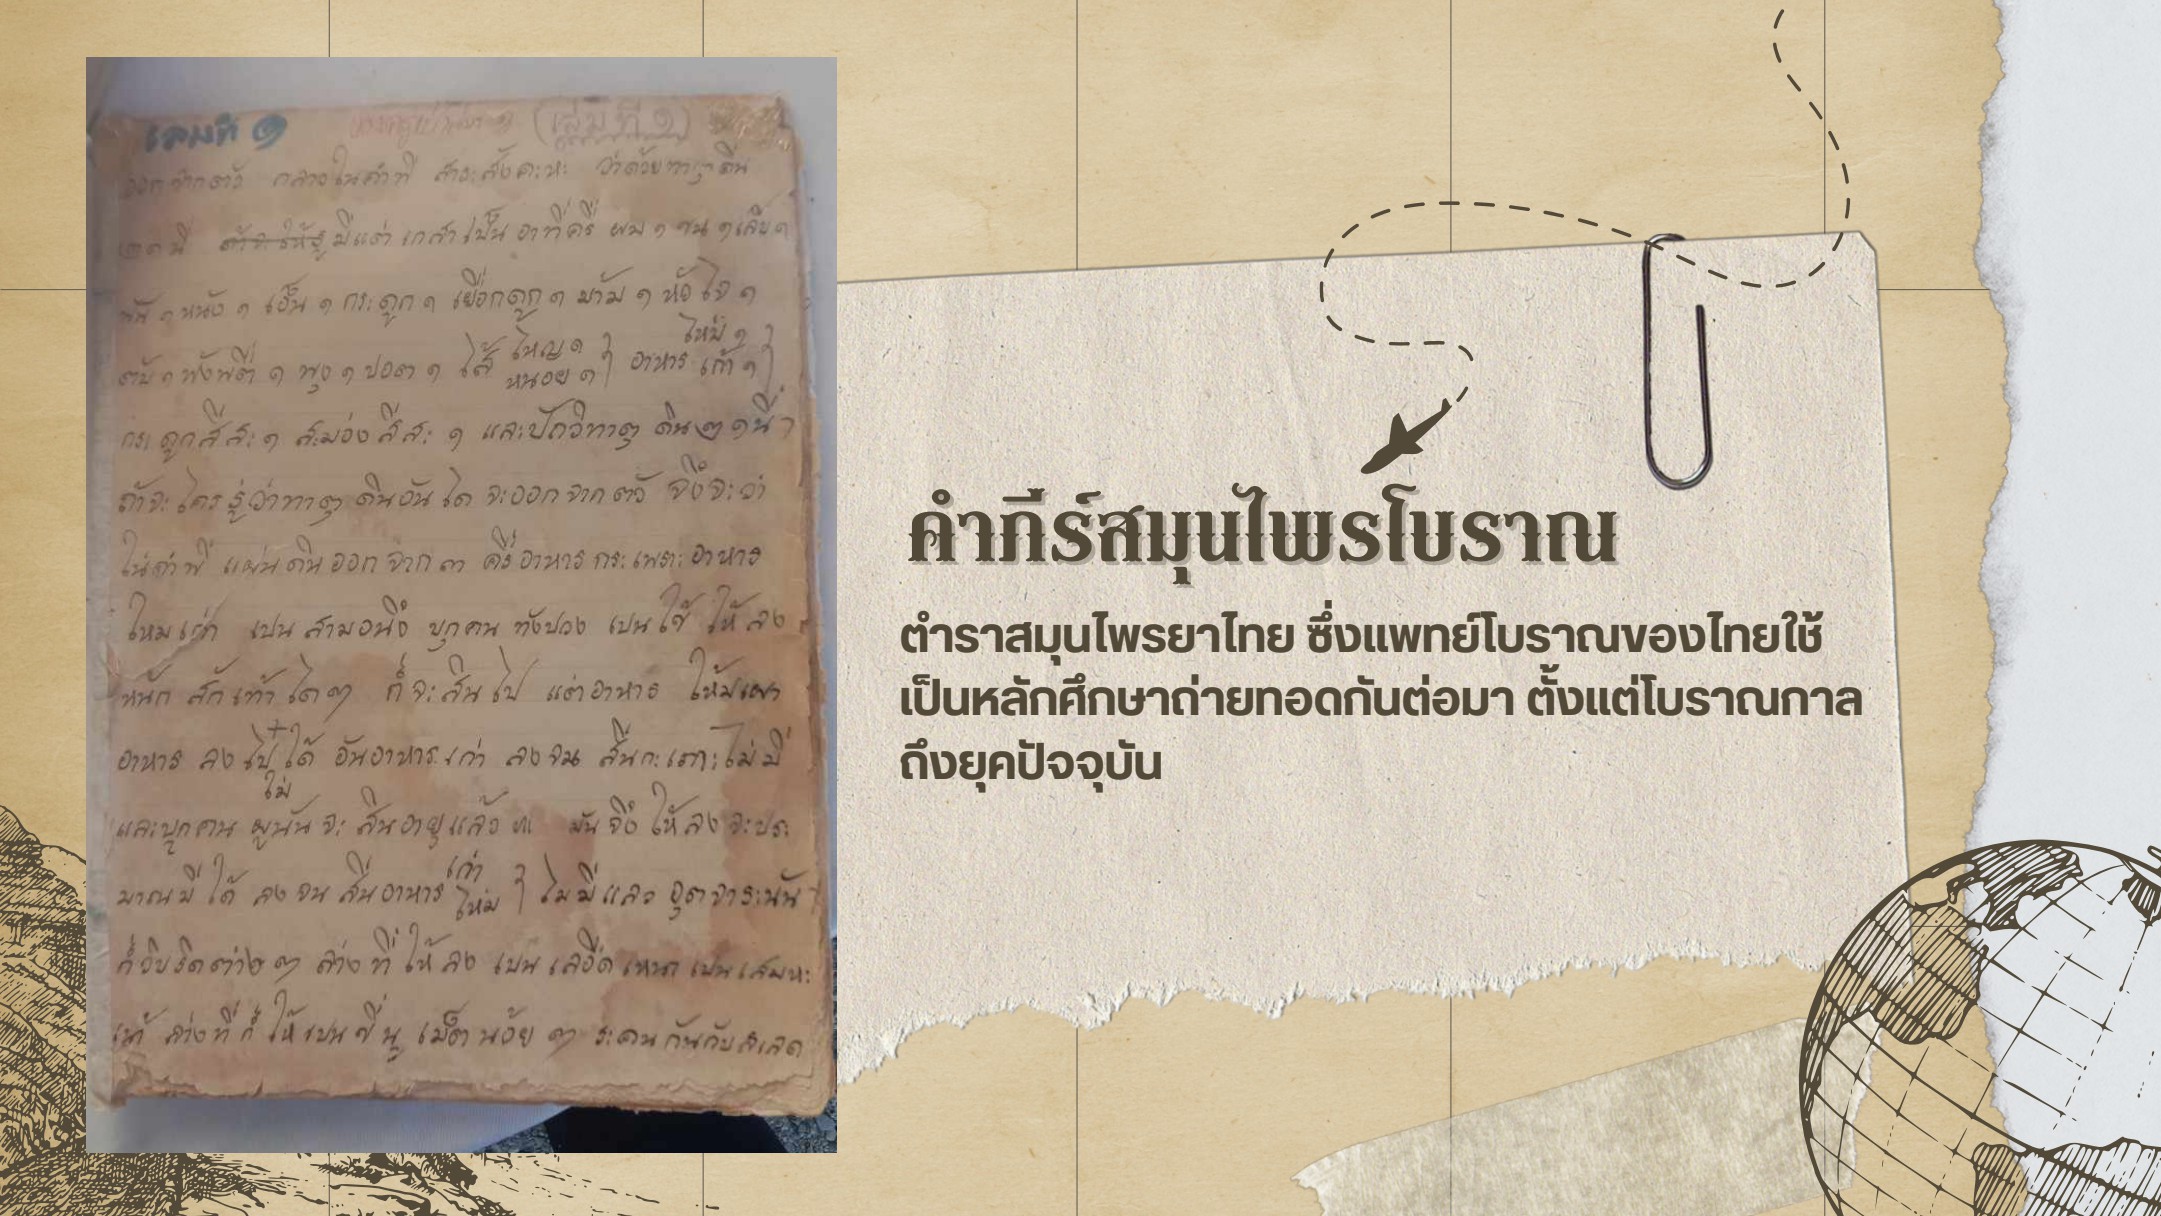 เลมที ๑ (เล่มที่ ๑)
ออกจากตวั กลาวในคำพี สาระสังคะหะ ว่าด้วยทาตุดิน
มีแต่า เกสาเป็น อาทีคืร ผม ๑ ขน ๑ เล็บ ๑
ฟัน ๑ หนัง ๑ เอ็น ๑ กระดูก ๑ เยื่อกดูก ๑ ม้าม ๑ หัวไจ ๑
ตับ ๑ พังพืดี ๑ พุง ๑ ปอด ๑ ไส้ ไหญ ๑ หนอย ๑ อาหาร ไหม่ ๑ เก้า ๑
กระดูกสีสะ ๑ สะมอ่งสีสะ ๑ และปัถวีทาตุ ดิน ๒๑ นี้
ถ้าจะไคร รู่ว่าทาตุ ดินอันได จะออกจากตวั จึงจะว่า
ไนคำพี แผ่นดินออกจาก ๓ คืร อาหาร กระเพราะอาหาร
ไหมเก่า เปนสามอนึง บุกคน ทังปวง เปนใข้ ให้ลง
หนัก สักเท้าไดๆ ก็จะสินไป แต่อาหาร
อาหาร ลง ไป ได้ อันอาหารเก่า ลงจน สิน ไม่มี
ไม่
และบุกคน ผูนันจะ สินอายุแล้ว มันจึง ให้ลง จะประ
มาณมีได้ ลงจน สินอาหาร เก่า ไหม่ ไมมีแลว อุตจาระนัน
ก็วิบริดต่างๆ ลางที ให้ลง เปนเลอืด เปนเสมหะ
ลางที ก็ ให้เปนขีนู เม็ดนอ้ย ๆ ระคนกันกับสเลด
คำภีร์สมุนไพรโบราณ
ตำราสมุนไพรยาไทย ซึ่งแพทย์โบราณของไทยใช้
เป็นหลักศึกษาถ่ายทอดกันต่อมา ตั้งแต่โบราณกาล
ถึงยุคปัจจุบัน